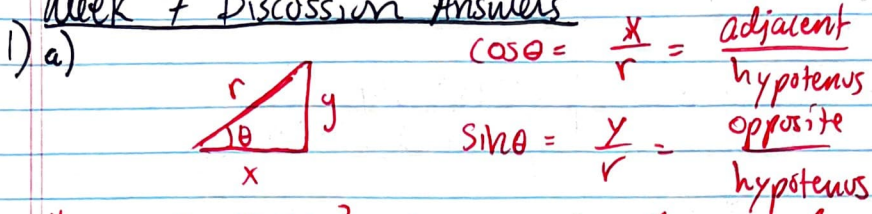 Week 7 Discussion Answers
1) a)
cosθ = x/r = adjacent/hypotenus
r
y
θ
sinθ = y/r = opposite/hypotenus
x